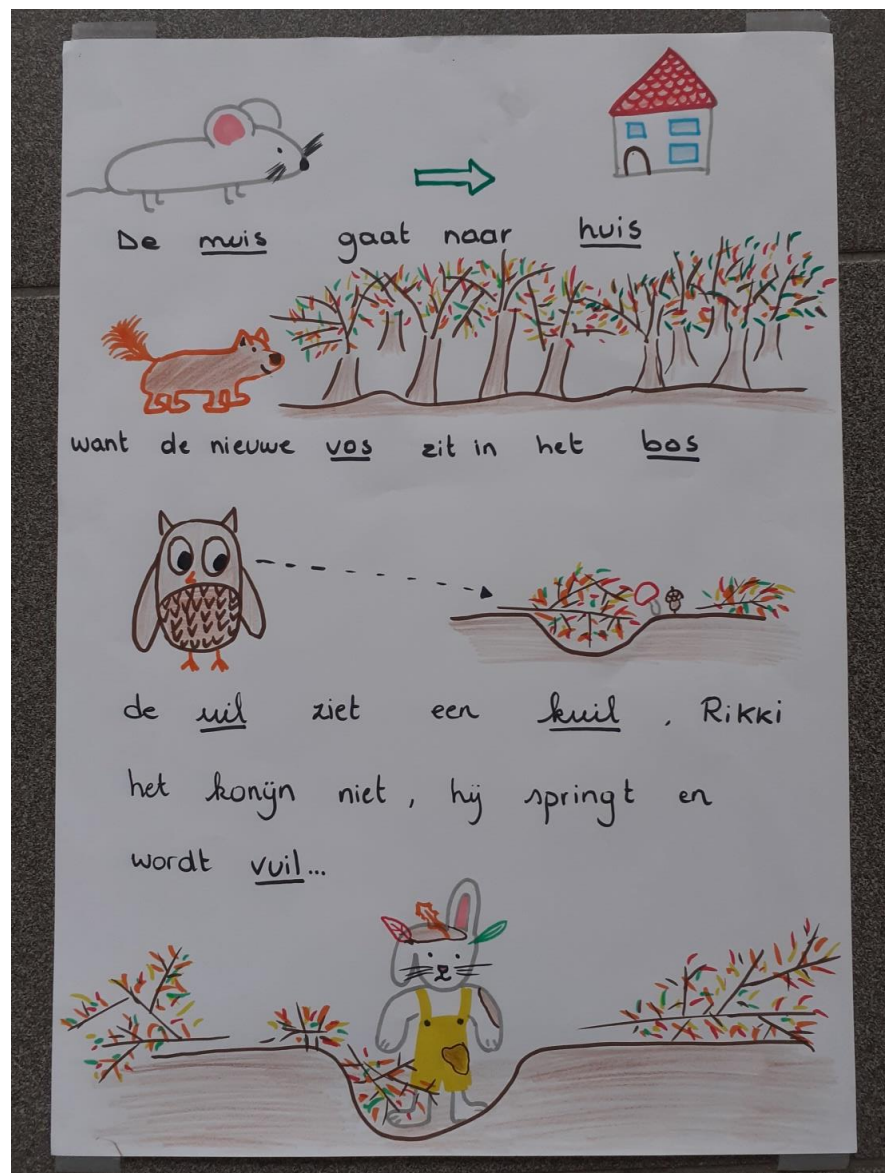 De muis gaat naar huis
want de nieuwe vos zit in het bos
de uil ziet een kuil, Rikki
het konijn niet, hij springt en
wordt vuil...